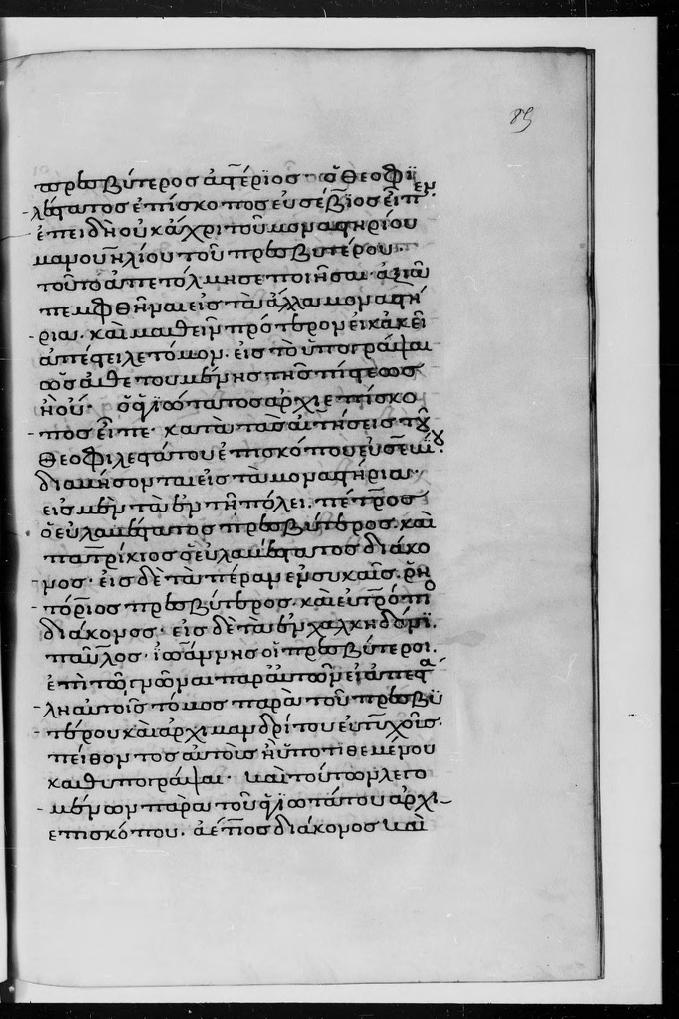 89
πρεσβύτερος ἀστέριος · ὁ θεοφι
λέστατος ἐπίσκοπος εὐσέβιος εἶπεν
ἐπειδὴ οὐκ ἄχρι τοῦ μοναστηρίου
μανουηλίου τοῦ πρεσβυτέρου ·
τοῦτο ἀπετόλμησε ποιῆσαι · ἀξιῶ
πεμφθῆναι εἰς τὰ ἄλλα μοναστή
ρια · καὶ μαθεῖν πρότερον εἰ κἀκεῖ
ἀπέστειλε τόμον · εἰς τὸ ὑπογράψαι
ὡς αἴθε τουμένης τῆς πίστεως
ἢ οὔ · ὁ ἁγιώτατος ἀρχιεπίσκο
πος εἶπε · κατὰ τὰς αἰτήσεις τοῦ
θεοφιλεστάτου ἐπισκόπου εὐσεβίου ·
διανήσονται εἰς τὰ μοναστήρια ·
εἰς μὲν τὰ ἐν τῇ πόλει · πέτρος
ὁ εὐλαβέστατος πρεσβύτερος · καὶ
πατρίκιος ὁ εὐλαβέστατος διάκο
νος · εἰς δὲ τὰ πέραν ἐν συκαῖς · ῥη
τόριος πρεσβύτερος · καὶ εὐτρόπιο
διάκονος · εἰς δὲ τὰ ἐν χαλκηδόνι ·
παῦλος · ἰωάννης οἱ πρεσβύτεροι ·
ἐπὶ τῷ γνῶναι παρ αὐτῶν εἰ ἀπεστά
λη αὐτοῖς τόμος παρὰ τοῦ πρεσβυ
τέρου καὶ ἀρχιμανδρίτου εὐτυχοῦς ·
πείθοντος αὐτοὺς ἢ ὑποτιθεμένου
καθυπογράψαι · καὶ τούτων λεγο
μένων παρὰ τοῦ ἁγιωτάτου ἀρχι
επισκόπου · ἀέτιος διάκονος καὶ